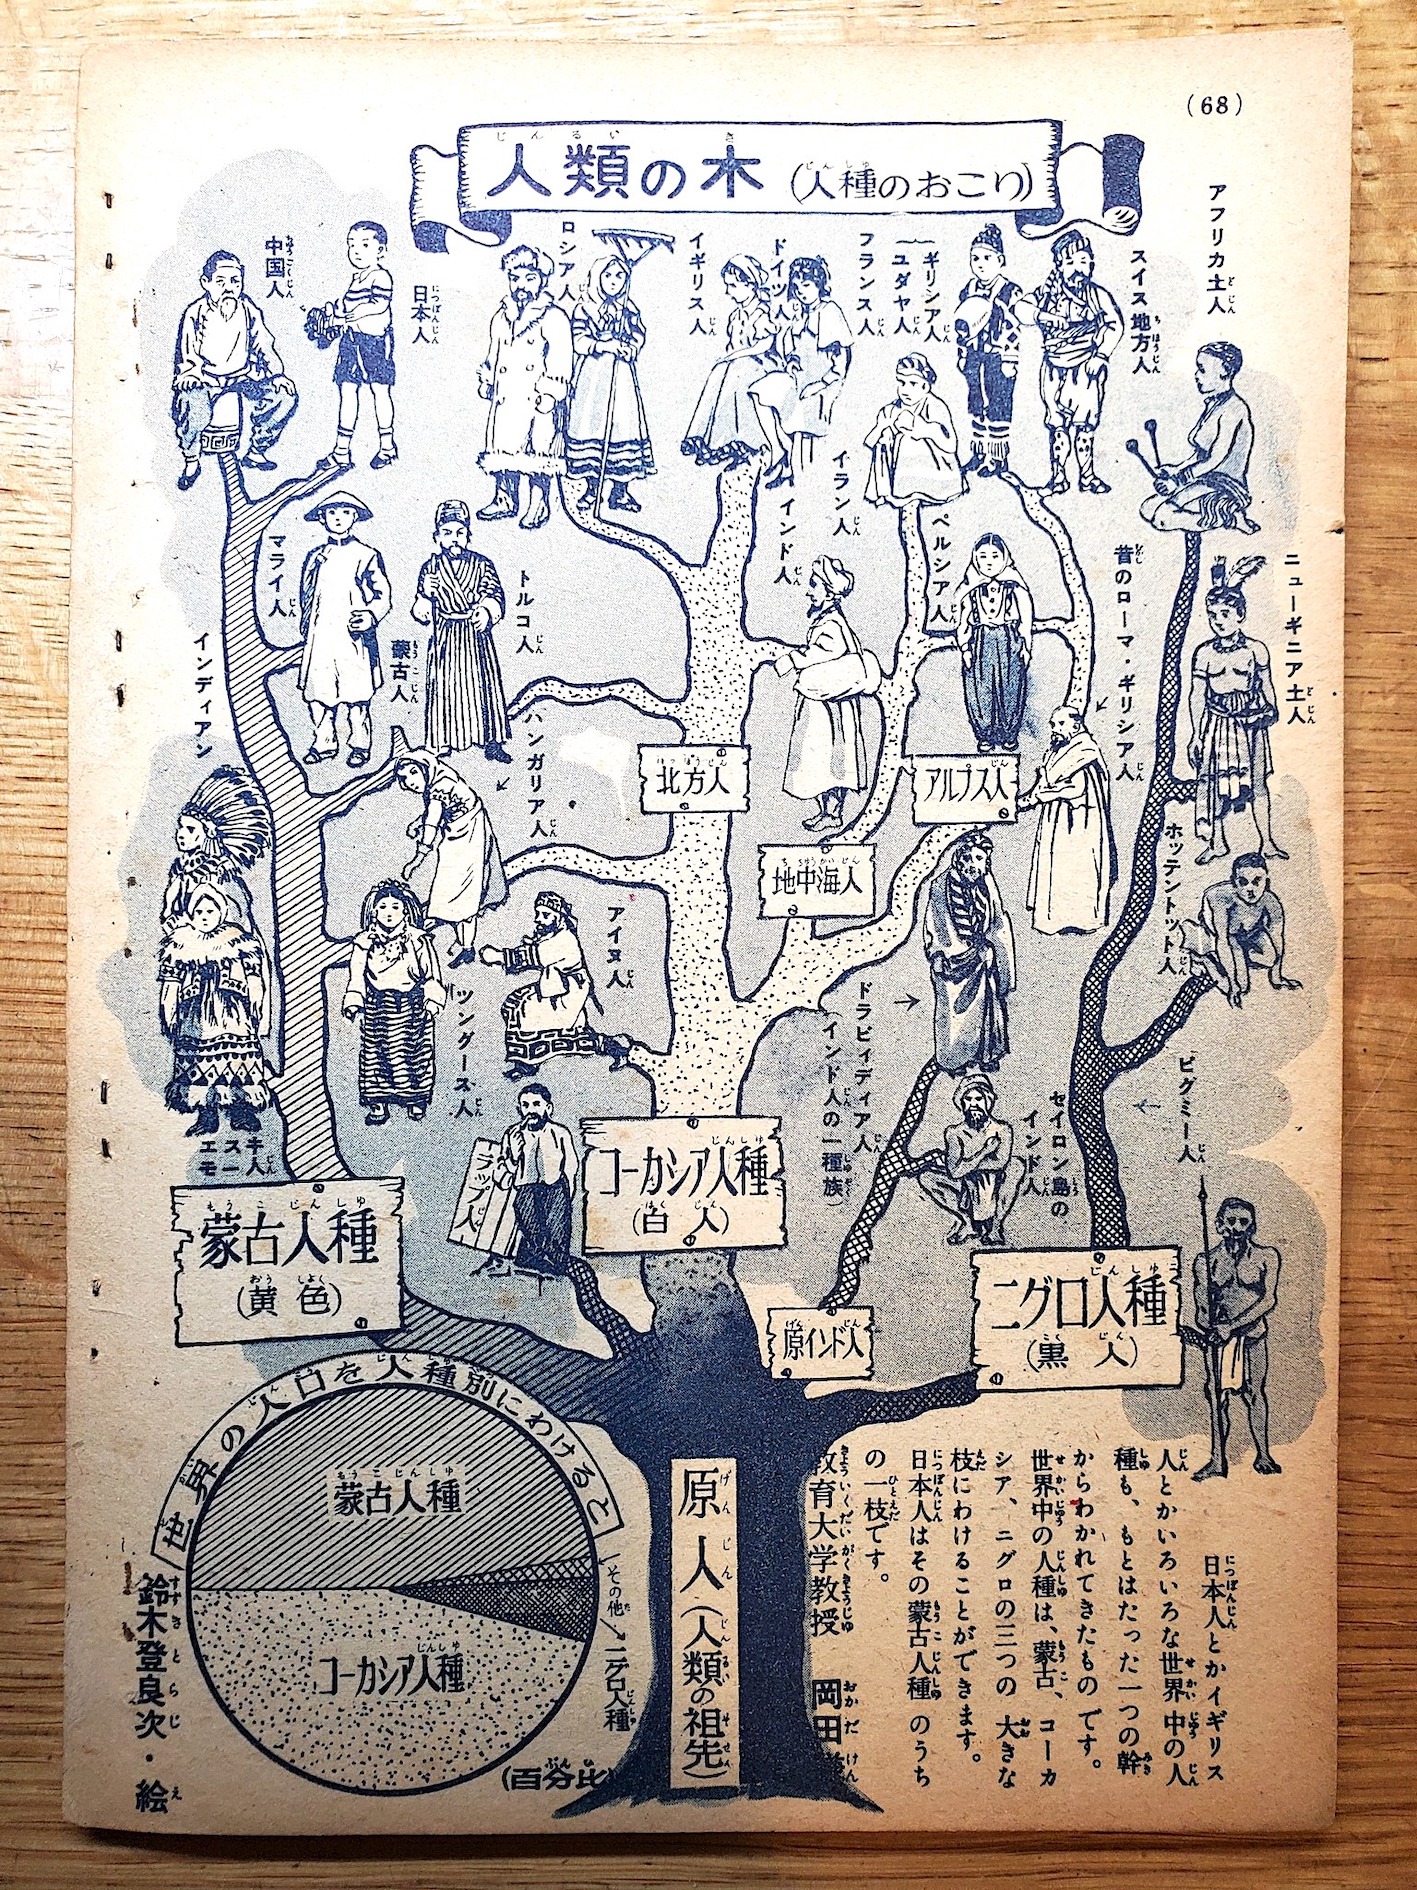 (68)
人類の木(人種のおこり)
アフリカ土人
スイス地方人
ギリシア人
ユダヤ人
フランス人
ドイツ人
イギリス人
ロシア人
日本人
中国人
ニューギニア土人
昔のローマ・ギリシア人
ペルシア人
イラン人
インド人
トルコ人
蒙古人
マライ人
インディアン
ホッテントット人
アルプス人
北方人
地中海人
ハンガリア人
アイヌ人
ツングース人
ドラビィディア人
(インド人の一種族)
ピグミー人
セイロン島の
インド人
エスキ
モー人
ラップ人
コーカシア人種
(白人)
蒙古人種
(黄色)
ニグロ人種
(黒人)
原インド人
世界の人口を人種別にわけると
蒙古人種
コーカシア人種
その他
ニグロ人種
(百分比)
原人(人類の祖先)
日本人とかイギリス
人とかいろいろな世界中の人
種も、もとはたった一つの幹
からわかれてきたものです。
世界中の人種は、蒙古、コーカ
シア、ニグロの三つの大きな
枝にわけることができます。
日本人はその蒙古人種のうち
の一枝です。
教育大学教授 岡田
鈴木登良次・絵